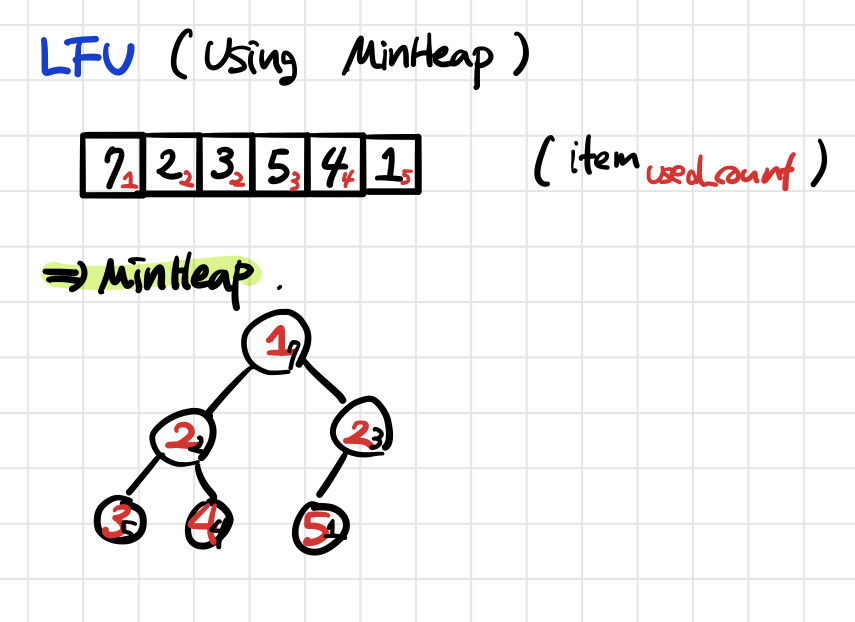 LFU (Using MinHeap)
7 1 2 2 3 2 5 3 4 4 1 5 (item used_count)
⇒ MinHeap.
1 7
2 2 2 3
3 5 4 4 5 1